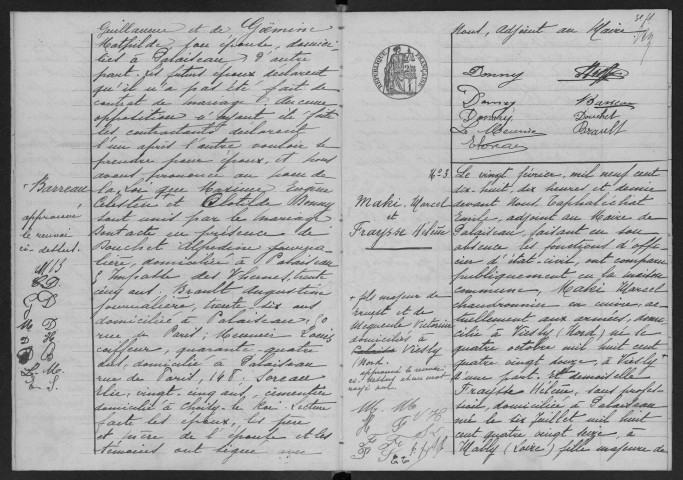 Guillaume et de Goëmine
Mathilde son épouse, domici-
liés à Palaiseau d'autre
part. Les futurs époux déclarent
qu'il n'a pas été fait de
contrat de mariage. Aucune
opposition n'ayant été faite
les contractants déclarent
l'un après l'autre vouloir se
prendre pour époux, et nous
avons prononcé au nom de
la loi que Maxime Eugène
Célestin et Clotilde Donny
sont unis par le mariage
dont acte en présence de
Douchet journa-
lière, domiciliée à Palaiseau
8 Impasse des trente
cinq ans. Brault Augustine
journalière, trente six ans
domiciliée à Palaiseau, 50
rue Paris; Meunier Louis
coiffeur, quarante quatre
ans, domicilié à Palaiseau
rue de Paris, 148; Soreau
Elie, vingt-cinq ans, cimentier
domicilié à Choisy-le-Roi. Lecture
faite les époux, les père
et mère de l'épouse et les
témoins ont signé avec
+ Barreau
approuvé
le renvoi
ci-dessus.
Nous, Adjoint au Maire
RÉPUBLIQUE FRANÇAISE
Donny
Donny
Barreau
Douchet
Le Meunier
Brault
No 3
Maki, Marcel
et
Fraysse Hélène
+ fils majeur de
et de
Victorine
domiciliés à
Viesly
(Nord)
approuvé le renvoi
ci-dessus et un mot
rayé nul
Le vingt février, mil neuf cent
dix huit, dix heures et demie
devant Nous
Emile, adjoint au Maire de
Palaiseau, faisant en son
absence les fonctions d'offi-
cier d'état-civil, ont comparu
publiquement en la maison
commune, Maki Marcel
chaudronnier en cuivre, ac-
tuellement aux armées, domi-
cilié à Viesly (Nord), né le
quatre octobre mil huit cent
quatre vingt douze, à Viesly +
d'une part. Et demoiselle
Fraysse Hélène, sans profes-
sion, domiciliée à Palaiseau
née le six juillet mil huit
cent quatre vingt seize, à
Mably (Loire) fille majeure de